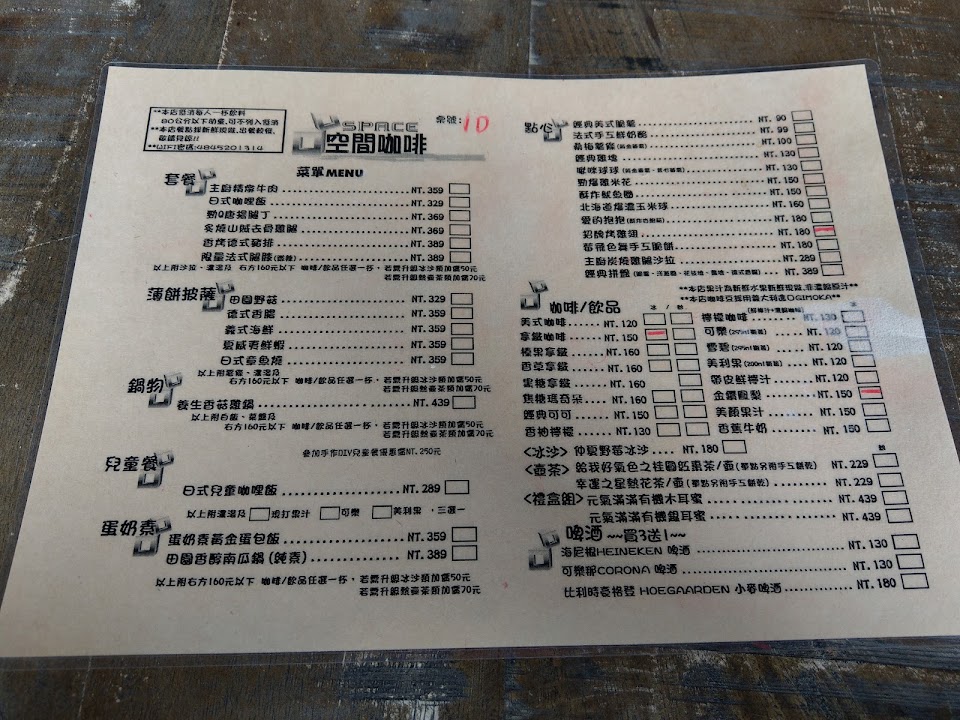 **本店低消每人一杯飲料
80公分以下幼童,可不列入低消
**本店餐點採新鮮現做,出餐較慢,
敬請見諒!!
**WIFI密碼:4845201314
SPACE
空間咖啡
桌號: 10
菜單MENU
套餐
主廚精燉牛肉 NT. 359
日式咖哩飯 NT. 329
勁Q唐揚腿丁 NT. 369
炙燒山賊去骨雞腿 NT. 369
香烤德式豬排 NT. 389
限量法式腿膝 NT. 389
以上附沙拉、濃湯及 右方160元以下 咖啡/飲品任選一杯,若需升級冰沙類加價50元
若需升級熱壺茶類加價70元
薄餅披薩
田園野菇 NT. 329
德式香腸 NT. 359
義式海鮮 NT. 359
夏威夷鮮蝦 NT. 359
日式章魚燒 NT. 359
以上附薯條、濃湯及
右方160元以下 咖啡/飲品任選一杯,若需升級冰沙類加價50元
若需升級熱壺茶類加價70元
鍋物
養生香菇雞鍋 NT. 439
以上附白飯、菜盤及
右方160元以下 咖啡/飲品任選一杯,若需升級冰沙類加價50元
若需升級熱壺茶類加價70元
兒童餐
參加手作DIY兒童餐優惠價NT. 250元
日式兒童咖哩飯 NT. 289
以上附濃湯及 現打果汁 可樂 美利果 ,三選一
蛋奶素
蛋奶素黃金蛋包飯 NT. 359
田園香醇南瓜鍋(純素) NT. 389
以上附右方160元以下 咖啡/飲品任選一杯,若需升級冰沙類加價50元
若需升級熱壺茶類加價70元
點心
經典美式脆薯 NT. 90
法式手工鮮奶酪 NT. 99
梅梅薯條 NT. 100
經典雞塊 NT. 130
啾咪球球 NT. 130
勁爆雞米花 NT. 150
酥炸魷魚圈 NT. 150
北海道爆濃玉米球 NT. 160
愛的抱抱 NT. 180
招牌烤雞翅 NT. 180
莓飛色舞手工脆餅 NT. 180
主廚炭燒雞腿沙拉 NT. 289
經典拼盤 NT. 389
**本店果汁為新鮮水果新鮮現做,非濃縮原汁**
**本店咖啡豆採用義大利進口GIMOKA**
咖啡/飲品
冰 熱
美式咖啡 NT. 120
拿鐵咖啡 NT. 150
榛果拿鐵 NT. 160
香草拿鐵 NT. 160
黑糖拿鐵 NT. 160
焦糖瑪奇朵 NT. 160
經典可可 NT. 150
香柚檸檬 NT. 130
冰
檸檬咖啡 NT. 130
可樂 NT. 120
雪碧 NT. 120
美利果 NT. 120
帶皮鮮橙汁 NT. 120
金鑽鳳梨 NT. 150
美顏果汁 NT. 150
香蕉牛奶 NT. 150
<冰沙> 仲夏野莓冰沙 NT. 180
熱
<壺茶> 給我好氣色之桂圓紅棗茶/壺(單點另附手工餅乾) NT. 229
幸運之星熱花茶/壺(單點另附手工餅乾) NT. 229
<禮盒組> 元氣滿滿有機木耳蜜 NT. 439
元氣滿滿有機銀耳蜜 NT. 439
啤酒 ~~買3送1~~
海尼根HEINEKEN 啤酒 NT. 130
可樂那CORONA 啤酒 NT. 130
比利時豪格登 HOEGAARDEN 小麥啤酒 NT. 180